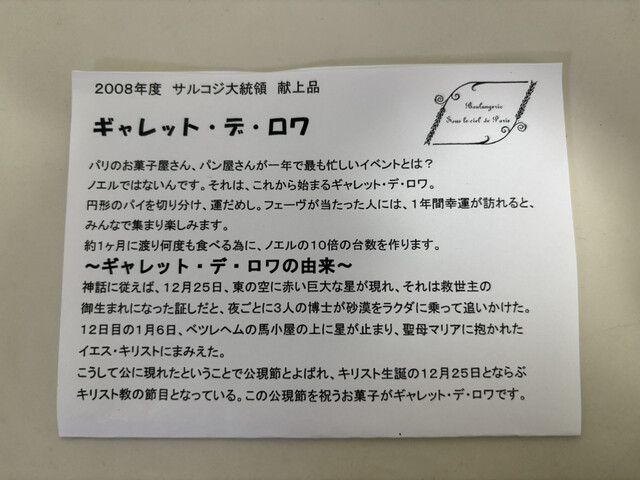 2008年度 サルコジ大統領 献上品
Boulangerie
Sous le ciel de Paris
ギャレット・デ・ロワ
パリのお菓子屋さん、パン屋さんが一年で最も忙しいイベントとは？
ノエルではないんです。それは、これから始まるギャレット・デ・ロワ。
円形のパイを切り分け、運だめし。フェーヴが当たった人には、1年間幸運が訪れると、
みんなで集まり楽しみます。
約1ヶ月に渡り何度も食べる為に、ノエルの10倍の台数を作ります。
～ギャレット・デ・ロワの由来～
神話に従えば、12月25日、東の空に赤い巨大な星が現れ、それは救世主の
御生まれになった証しだと、夜ごとに3人の博士が砂漠をラクダに乗って追いかけた。
12日目の1月6日、ベツレヘムの馬小屋の上に星が止まり、聖母マリアに抱かれた
イエス・キリストにまみえた。
こうして公に現れたということで公現節とよばれ、キリスト生誕の12月25日とならぶ
キリスト教の節目となっている。この公現節を祝うお菓子がギャレット・デ・ロワです。